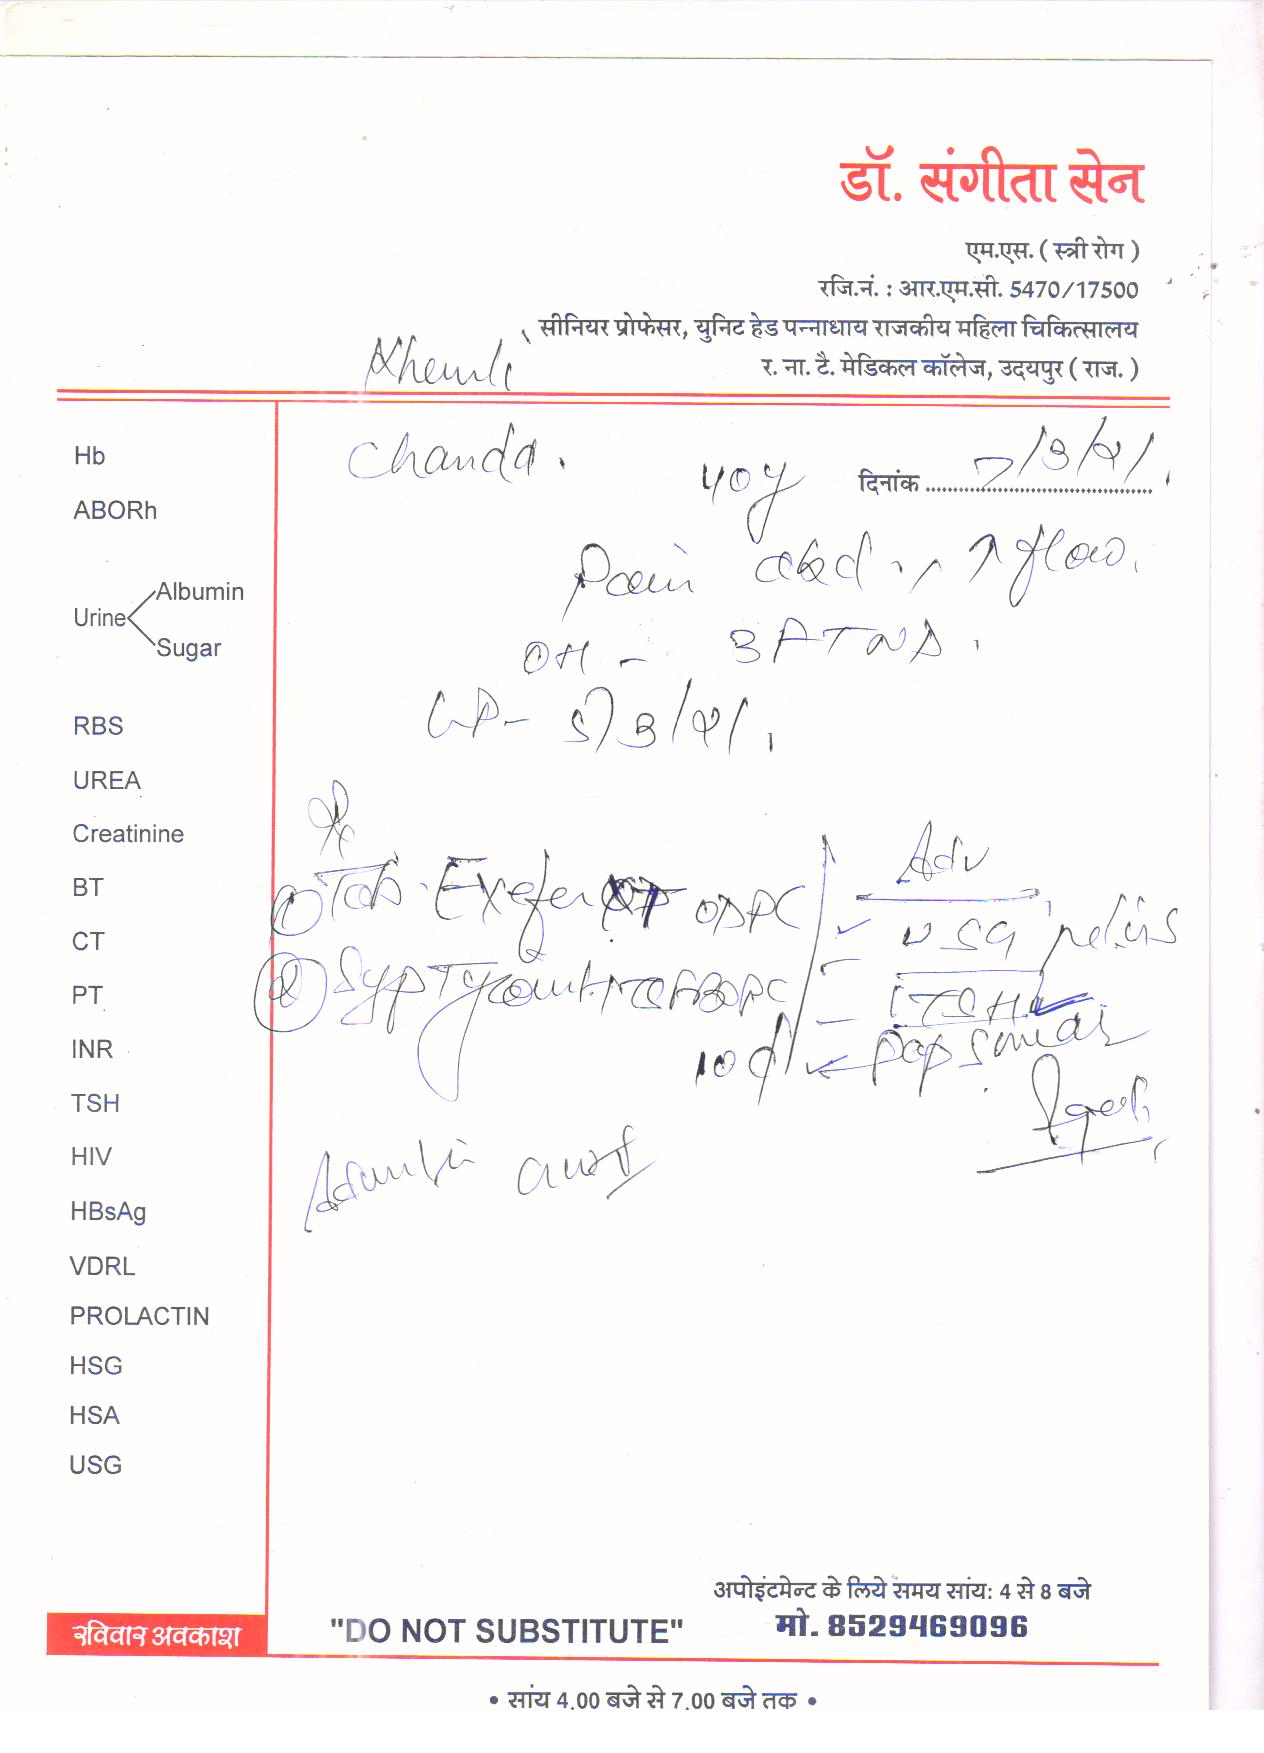 डॉ. संगीता सेन
एम.एस. ( स्त्री रोग )
रजि.नं. : आर.एम.सी. 5470/17500
सीनियर प्रोफेसर, युनिट हेड पन्नाधाय राजकीय महिला चिकित्सालय
र. ना. टै. मेडिकल कॉलेज, उदयपुर ( राज. )
Khemli
Chanda. 40y दिनांक 7/3/21.
Pain abd., ↑ flow.
OH - 3FTND.
LP - 5/3/21.
Rx Adv
① Tab. Exefer XT OD PC USG pelvis
② Syp PC TSH
10 d Pap smear
Hb
ABORh
Urine Albumin
Sugar
RBS
UREA
Creatinine
BT
CT
PT
INR
TSH
HIV
HBsAg
VDRL
PROLACTIN
HSG
HSA
USG
अपोइंटमेन्ट के लिये समय सांय: 4 से 8 बजे
रविवार अवकाश "DO NOT SUBSTITUTE" मो. 8529469096
• सांय 4.00 बजे से 7.00 बजे तक •